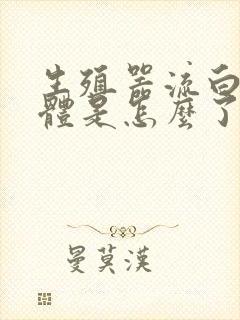 生殖器流白
體是怎麼了
曼莫漢